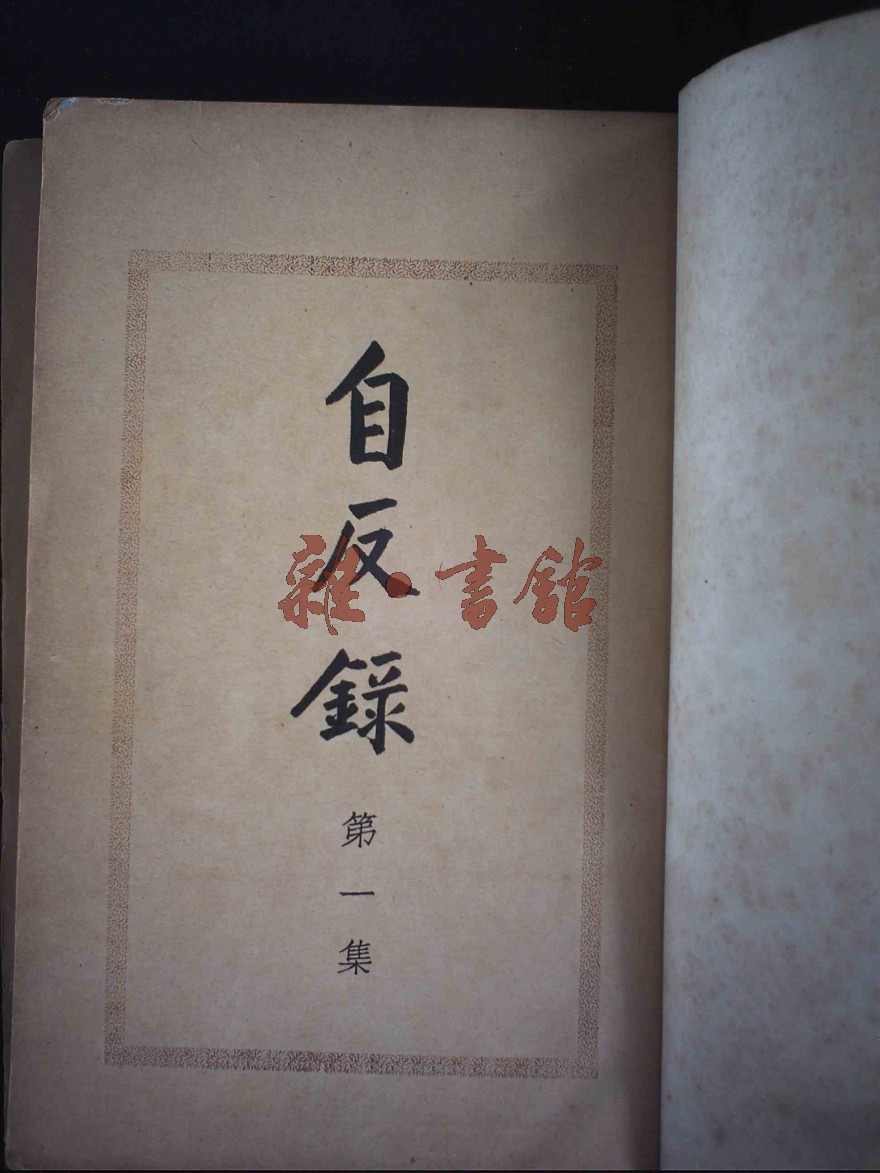 自反錄
第一集
雜·書館